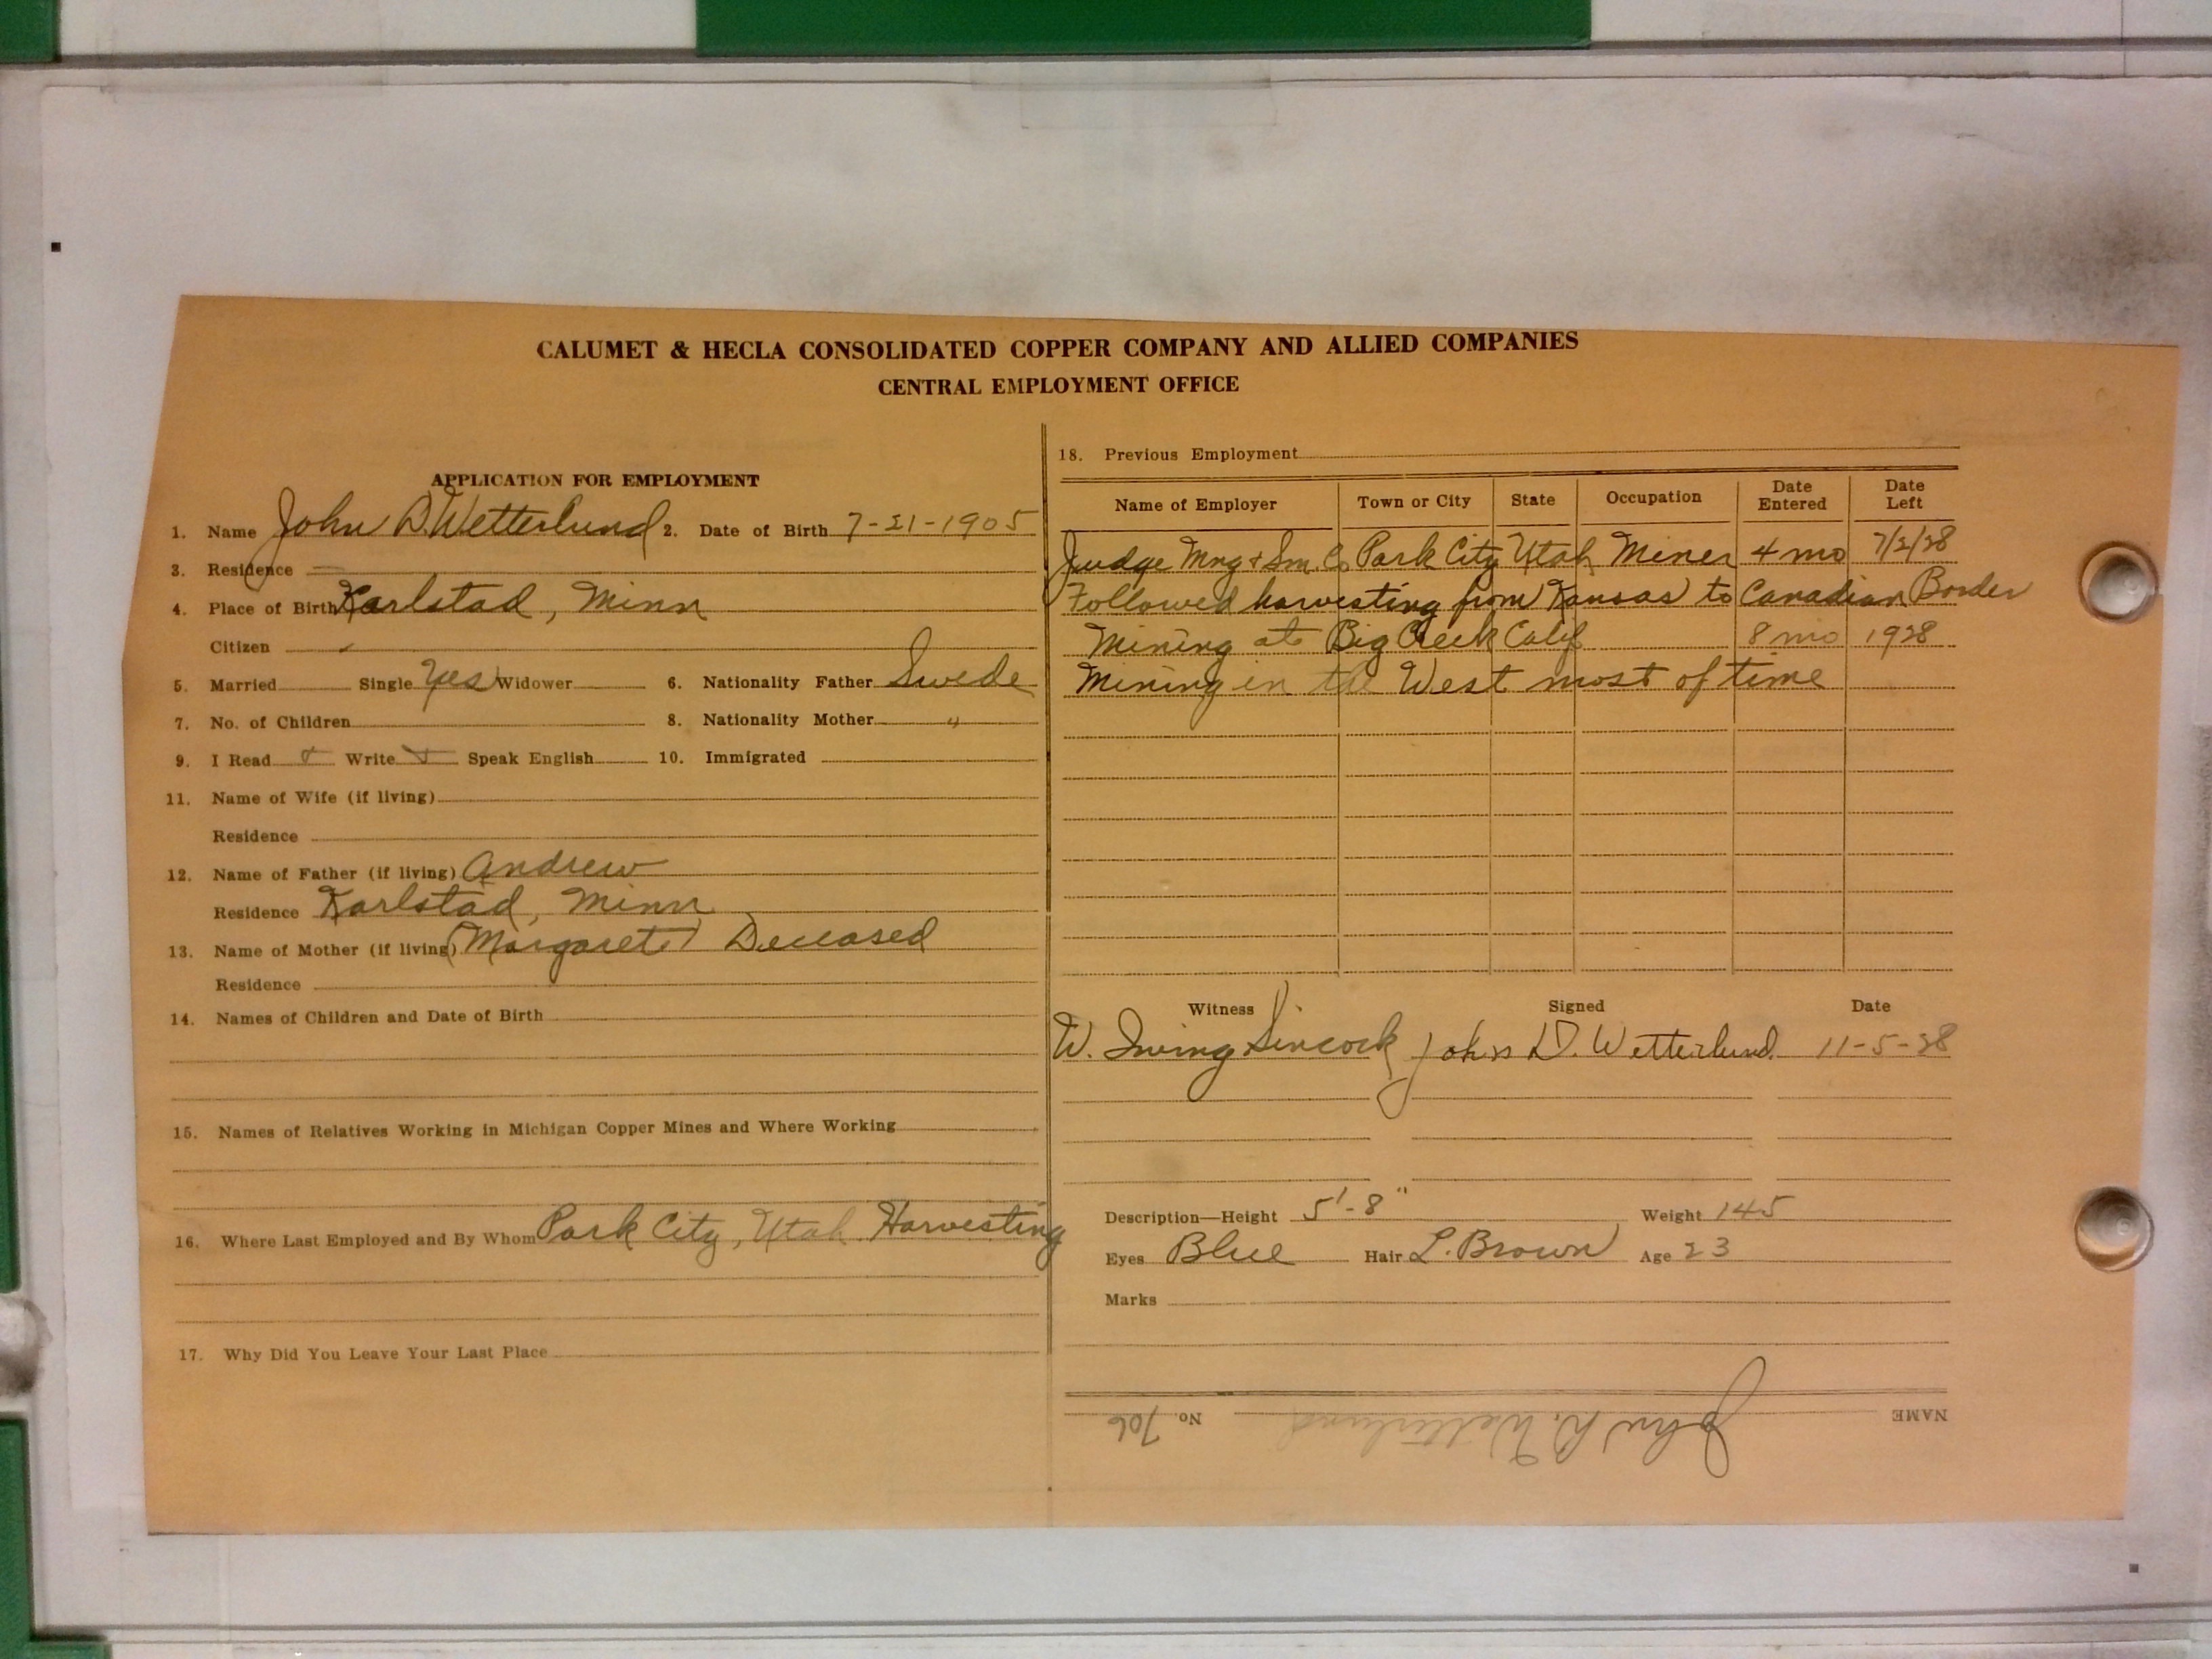 CALUMET & HECLA CONSOLIDATED COPPER COMPANY AND ALLIED COMPANIES
CENTRAL EMPLOYMENT OFFICE
APPLICATION FOR EMPLOYMENT
1. Name John D. Wetterlund 2. Date of Birth 7-21-1905
3. Residence —
4. Place of Birth Karlstad, Minn
Citizen ✓
5. Married Single Yes Widower 6. Nationality Father Swede
7. No. of Children 8. Nationality Mother "
9. I Read Write Speak English 10. Immigrated
11. Name of Wife (if living)
Residence
12. Name of Father (if living) Andrew
Residence Karlstad, Minn
13. Name of Mother (if living) (Margaret) Deceased
Residence
14. Names of Children and Date of Birth
15. Names of Relatives Working in Michigan Copper Mines and Where Working
16. Where Last Employed and By Whom Park City, Utah. Harvesting
17. Why Did You Leave Your Last Place
18. Previous Employment
Name of Employer Town or City State Occupation Date Entered Date Left
Judge Mng + Sm. Co Park City Utah Miner 4 mo 7/2/28
Followed harvesting from Kansas to Canadian Border
Mining at Big Creek Calif 8 mo 1928
Mining in the West most of time
Witness Signed Date
W. Irving Sincock John D. Wetterlund 11-5-28
Description—Height 5'-8" Weight 145
Eyes Blue Hair L. Brown Age 23
Marks
NAME John D. Wetterlund No. 706